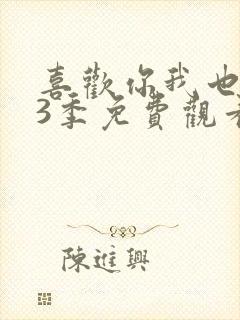 喜歡你我也
3季免費觀看
陳進興